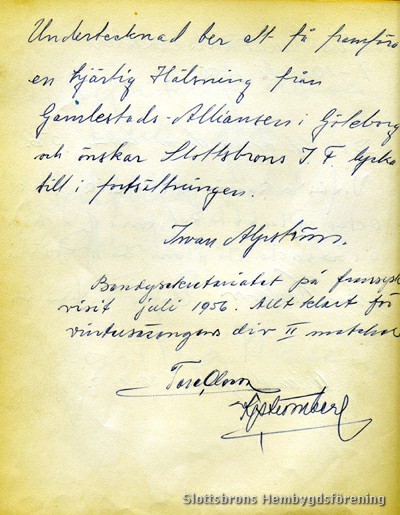 Undertecknad ber att få framföra
en hjärtlig Hälsning från
Gamlestads-Alliansen i Göteborg
och önskar Slottsbrons I.F lycka
till i fortsättningen.
Ivan Alpström.
Bandysekretariatet på fransysk
visit juli 1956. Allt klart för
vintersäsongens div II matcher
Tore Olsson
Strömberg
Slottsbrons Hembygdsförening